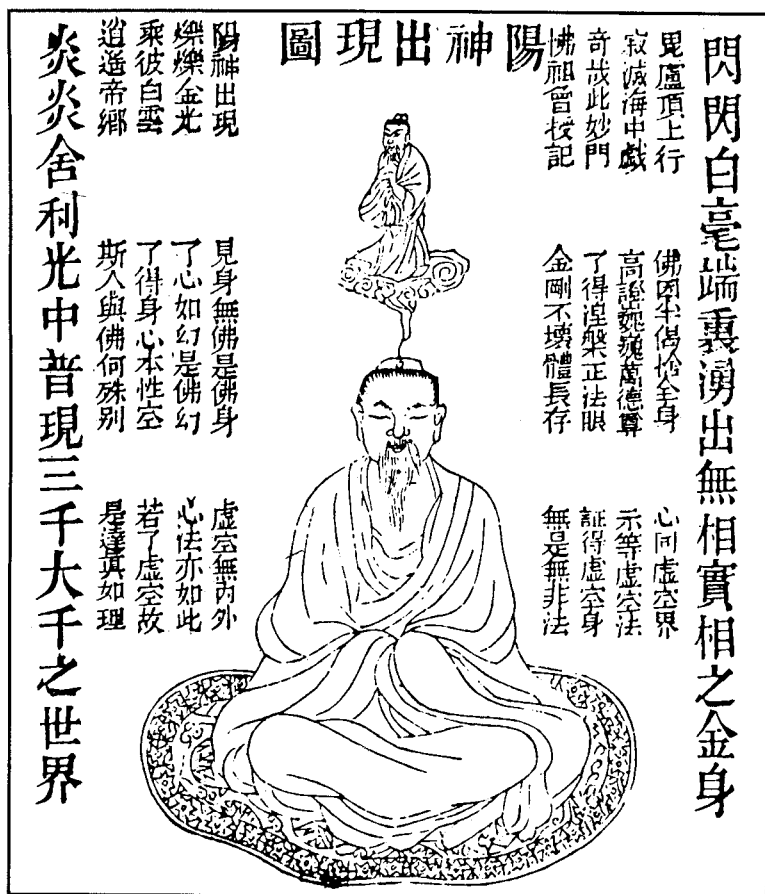 陽神出現圖
閃閃白毫端裏湧出無相實相之金身
毘盧頂上行
寂滅海中戲
奇哉此妙門
佛祖曾授記
佛因半偈捨全身
高證巍巍萬德尊
了得涅槃正法眼
金剛不壞體長存
心同虛空界
示等虛空法
証得虛空身
無是無非法
陽神出現
爍爍金光
乘彼白雲
逍遙帝鄉
見身無佛是佛身
了心如幻是佛幻
了得身心本性空
斯人與佛何殊別
虛空無內外
心法亦如此
若了虛空故
是達眞如理
炎炎舍利光中普現三千大千之世界